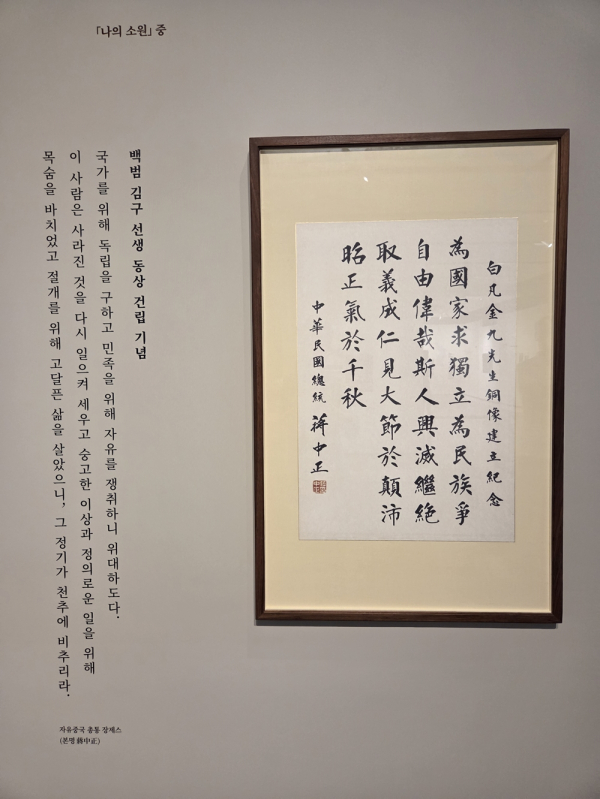 「나의 소원」 중
백범 김구 선생 동상 건립 기념
국가를 위해 독립을 구하고 민족을 위해 자유를 쟁취하니 위대하도다.
이 사람은 사라진 것을 다시 일으켜 세우고 숭고한 이상과 정의로운 일을 위해
목숨을 바치었고 절개를 위해 고달픈 삶을 살았으니, 그 정기가 천추에 비추리라.
자유중국 총통 장제스
(본명 蔣中正)
白凡金九先生銅像建立紀念
為國家求獨立為民族爭
自由偉哉斯人興滅繼絕
取義成仁見大節於顛沛
昭正氣於千秋
中華民國總統 蔣中正